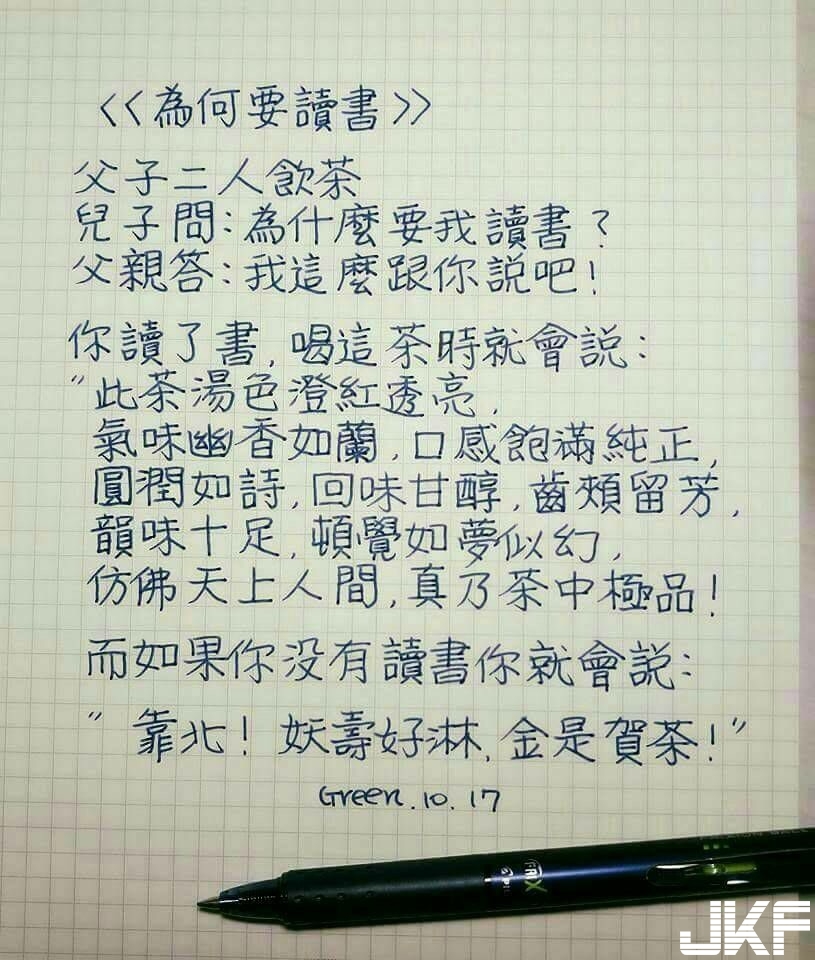 <<為何要讀書>>
父子二人飲茶
兒子問:為什麼要我讀書?
父親答:我這麼跟你說吧!
你讀了書,喝這茶時就會說:
"此茶湯色澄紅透亮,
氣味幽香如蘭,口感飽滿純正,
圓潤如詩,回味甘醇,齒頰留芳,
韻味十足,頓覺如夢似幻,
仿佛天上人間,真乃茶中極品!
而如果你沒有讀書你就會說:
"靠北!妖壽好淋,金是賀茶!"
Green.10.17
JKF